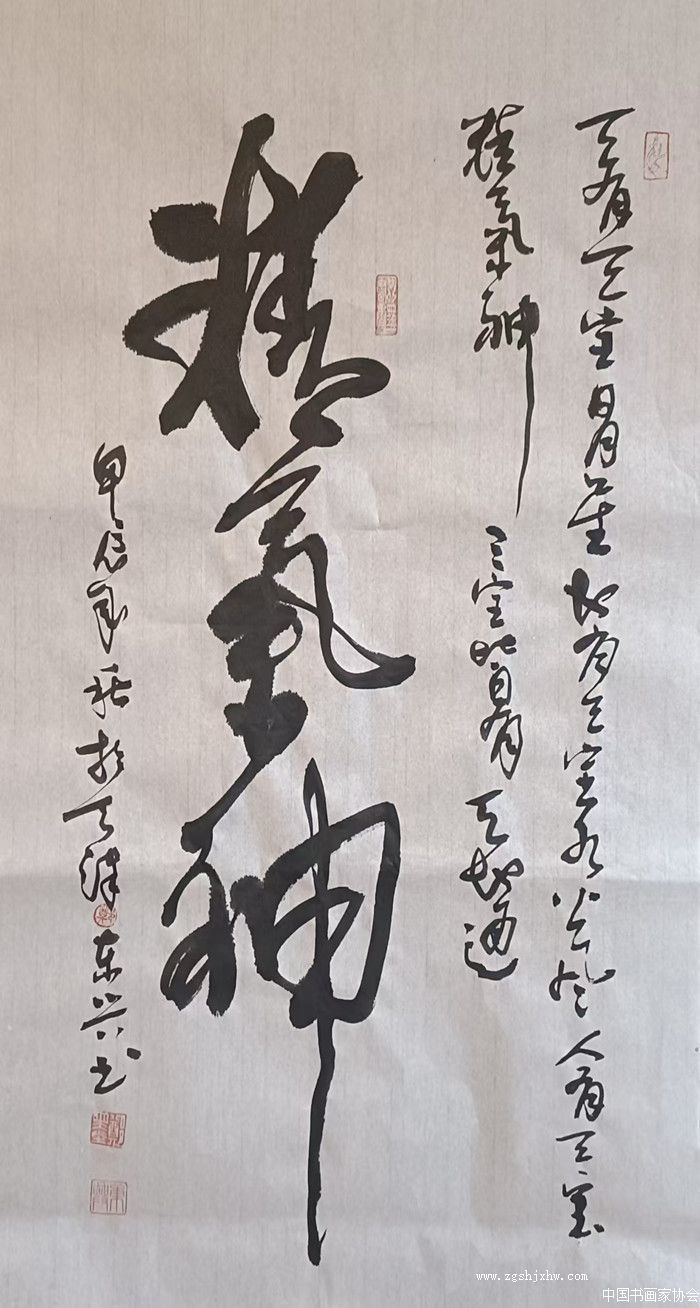 天有三宝日月星地有三宝水火风人有三宝
精氣神三宝皆有天地通
精氣神
甲辰年秋於天津东兴书
www.zgshjxhw.com
中国书画家协会